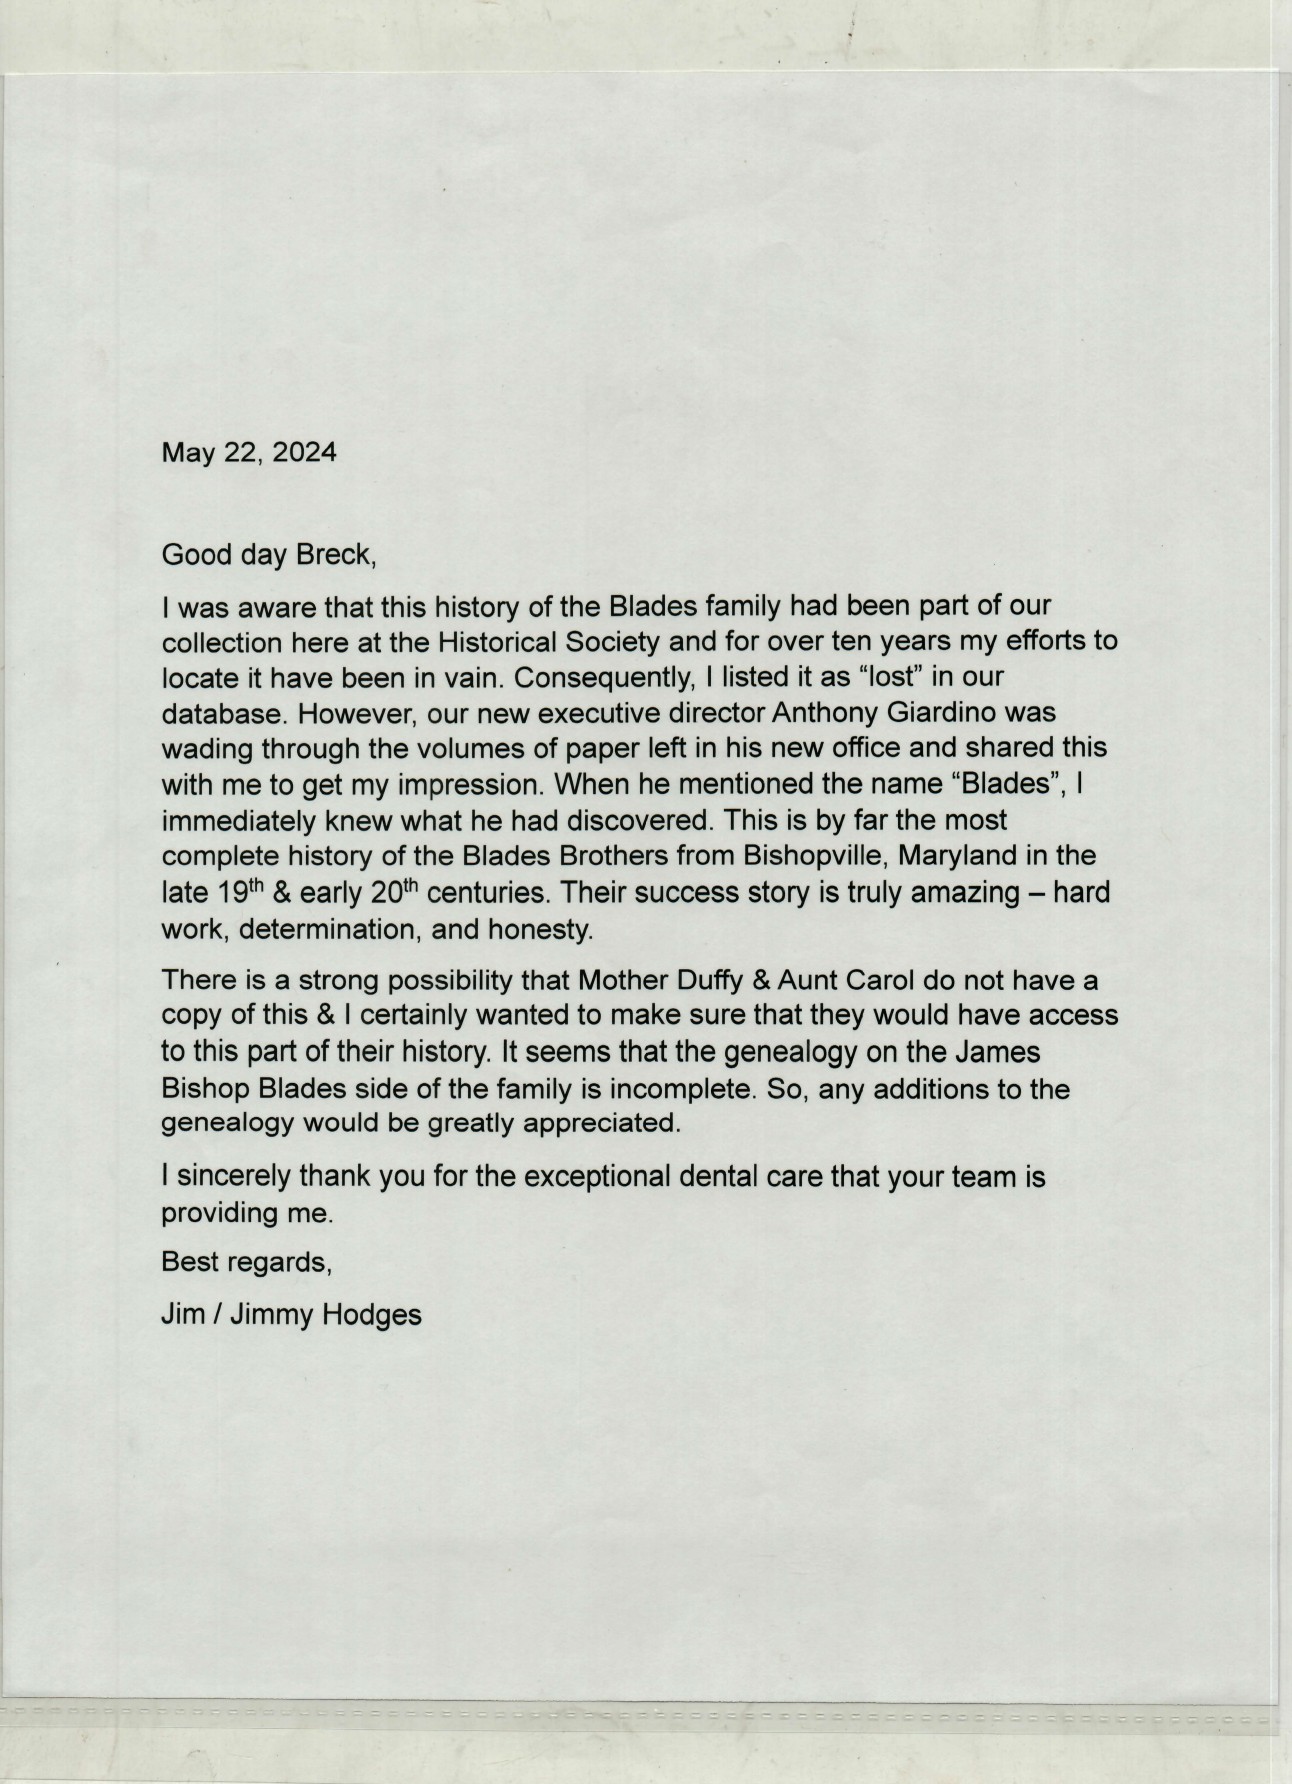 May 22, 2024
Good day Breck,
I was aware that this history of the Blades family had been part of our
collection here at the Historical Society and for over ten years my efforts to
locate it have been in vain. Consequently, I listed it as “lost” in our
database. However, our new executive director Anthony Giardino was
wading through the volumes of paper left in his new office and shared this
with me to get my impression. When he mentioned the name “Blades”, I
immediately knew what he had discovered. This is by far the most
complete history of the Blades Brothers from Bishopville, Maryland in the
late 19th & early 20th centuries. Their success story is truly amazing – hard
work, determination, and honesty.
There is a strong possibility that Mother Duffy & Aunt Carol do not have a
copy of this & I certainly wanted to make sure that they would have access
to this part of their history. It seems that the genealogy on the James
Bishop Blades side of the family is incomplete. So, any additions to the
genealogy would be greatly appreciated.
I sincerely thank you for the exceptional dental care that your team is
providing me.
Best regards,
Jim / Jimmy Hodges